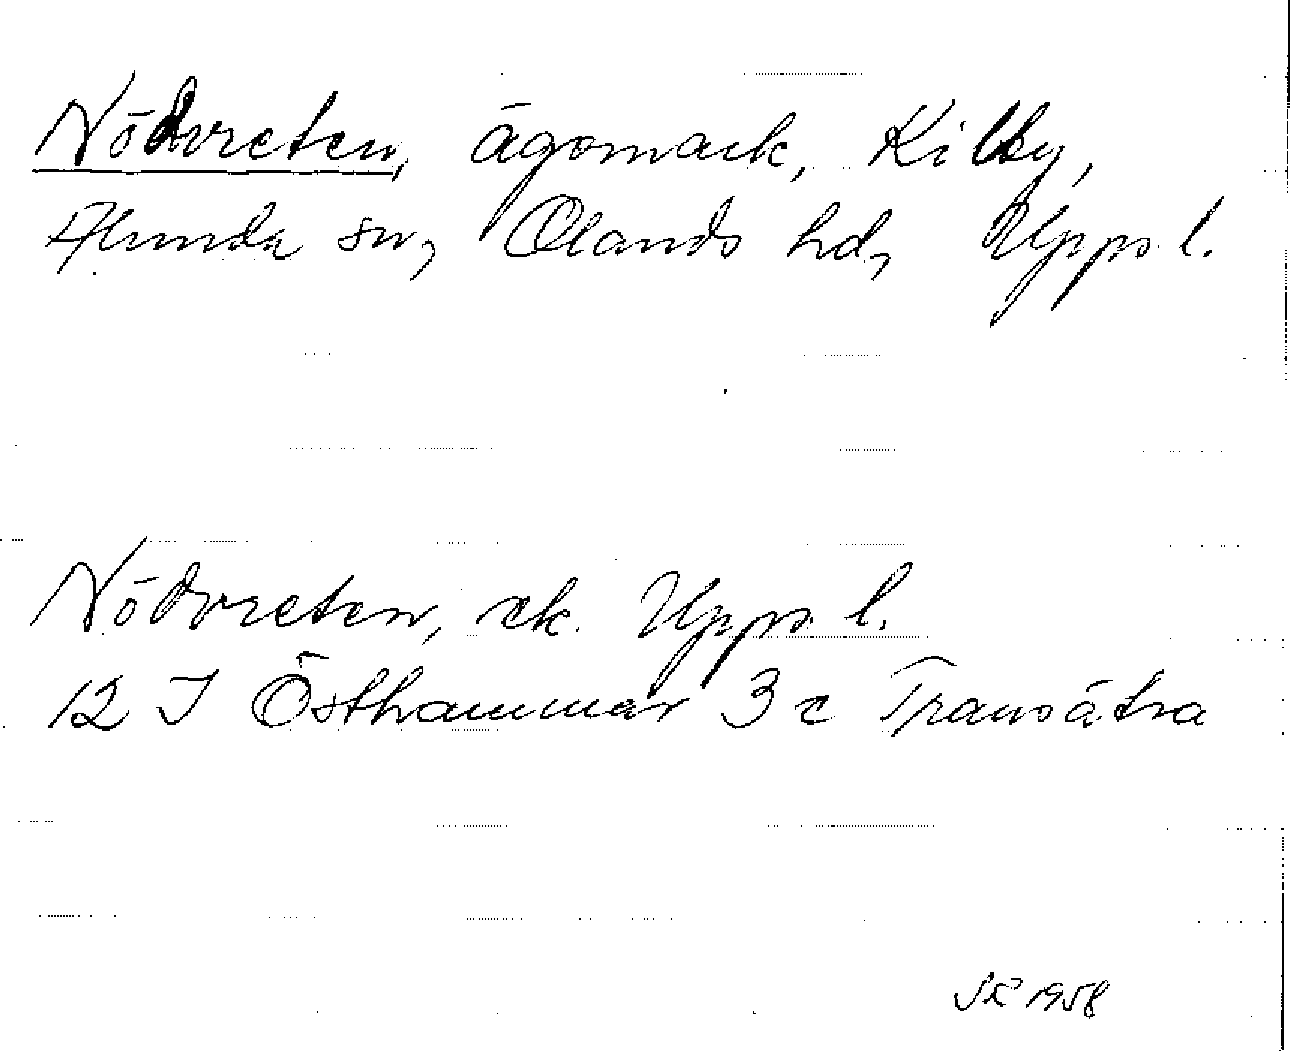 Nödvreten, ägomark, Kilby,
Alunda sn, Olands hd, Upps. l.
Nödvreten, ek. Upps. l.
12 I Östhammar 3 c Transätra
1958